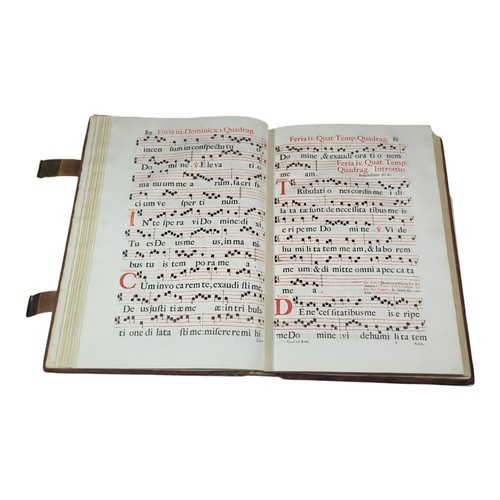 80 Feria iii. Dominicæ i. Quadrag.
incen sum in conspectu tu
o Domine. ℣. Eleva ti
o manuum mea rum, sacrifi
cium ve sper ti num.
IN te spera vi Domi ne: di xi:
Tu es De us me us, in ma ni
bus tu is tem pora me a.
CUm invoca rem te, exaudisti me,
De us justi tiæ me æ: in tri bula
ti one dilata sti me: miserere mi hi
Feria iv. Quat. Temp. Quadrag. 81
Do mi ne, & exaudi ora ti o nem
me am.
Feria iv. Quat. Temp.
Quadrag. Introitus.
TRibulati o nes cordis me i di
lata tæ sunt: de necessita tibus me is
e ripe me Do mi ne. ℣. Vi de
humi li ta tem me am, & labo rem
me um: & di mitte omni a pec ca ta
me a.
DE ne cessitatibus me is e ripe
me Do mine: vi de humi li ta tem